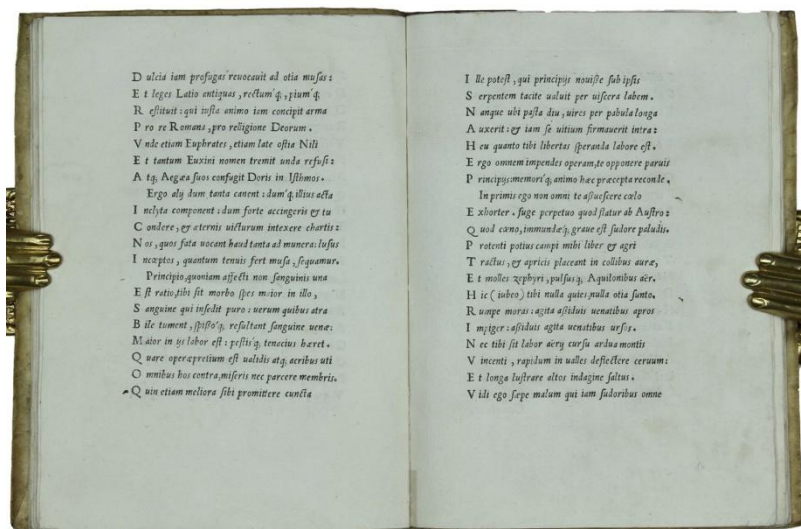 D ulcia iam profugas reuocauit ad otia musas:
E t leges Latio antiquas, rectum'q;, pium'q;
R estituit: qui iusta animo iam concipit arma
P ro re Romana, pro relligione Deorum.
V nde etiam Euphrates, etiam late ostia Nili
E t tantum Euxini nomen tremit unda refusi:
A tq; Aegæa suos confugit Doris in Isthmos.
Ergo alij dum tanta canent: dum'q; illius acta
I nclyta component: dum forte accingeris & tu
C ondere, & æternis uicturum intexere chartis:
N os, quos fata uocant haud tanta ad munera: lusus
I ncœptos, quantum tenuis fert musa, sequamur.
Principio, quoniam affecti non sanguinis una
E st ratio, tibi sit morbo spes maior in illo,
S anguine qui insedit puro: uerum quibus atra
B ile tument, spisso'q; resultant sanguine uenæ:
M aior in ijs labor est: pestis'q; tenacius hæret.
Q uare operæpretium est ualidis atq; acribus uti
O mnibus hos contra, miseris nec parcere membris.
Q uin etiam meliora sibi promittere cuncta
I lle potest, qui principijs nouisse sub ipsis
S erpentem tacite ualuit per uiscera labem.
N anque ubi pasta diu, uires per pabula longa
A uxerit: & iam se uitium firmauerit intra:
H eu quanto tibi libertas speranda labore est.
E rgo omnem impendes operam, te opponere paruis
P rincipijs: memori'q; animo hæc præcepta reconde.
In primis ego non omni te assuescere cœlo
E xhorter. fuge perpetuo quod flatur ab Austro:
Q uod cœno, immundæq; graue est sudore paludis.
P rotenti potius campi mihi liber & agri
T ractus, & apricis placeant in collibus auræ,
E t molles zephyri, pulsusq; Aquilonibus aër.
H ic (iubeo) tibi nulla quies, nulla otia sunto.
R umpe moras: agita assiduis uenatibus apros
I mpiger: assiduis agita uenatibus ursos.
N ec tibi sit labor aëry cursu ardua montis
V incenti, rapidum in ualles deflectere ceruum:
E t longa lustrare altos indagine saltus.
V idi ego sæpe malum qui iam sudoribus omne